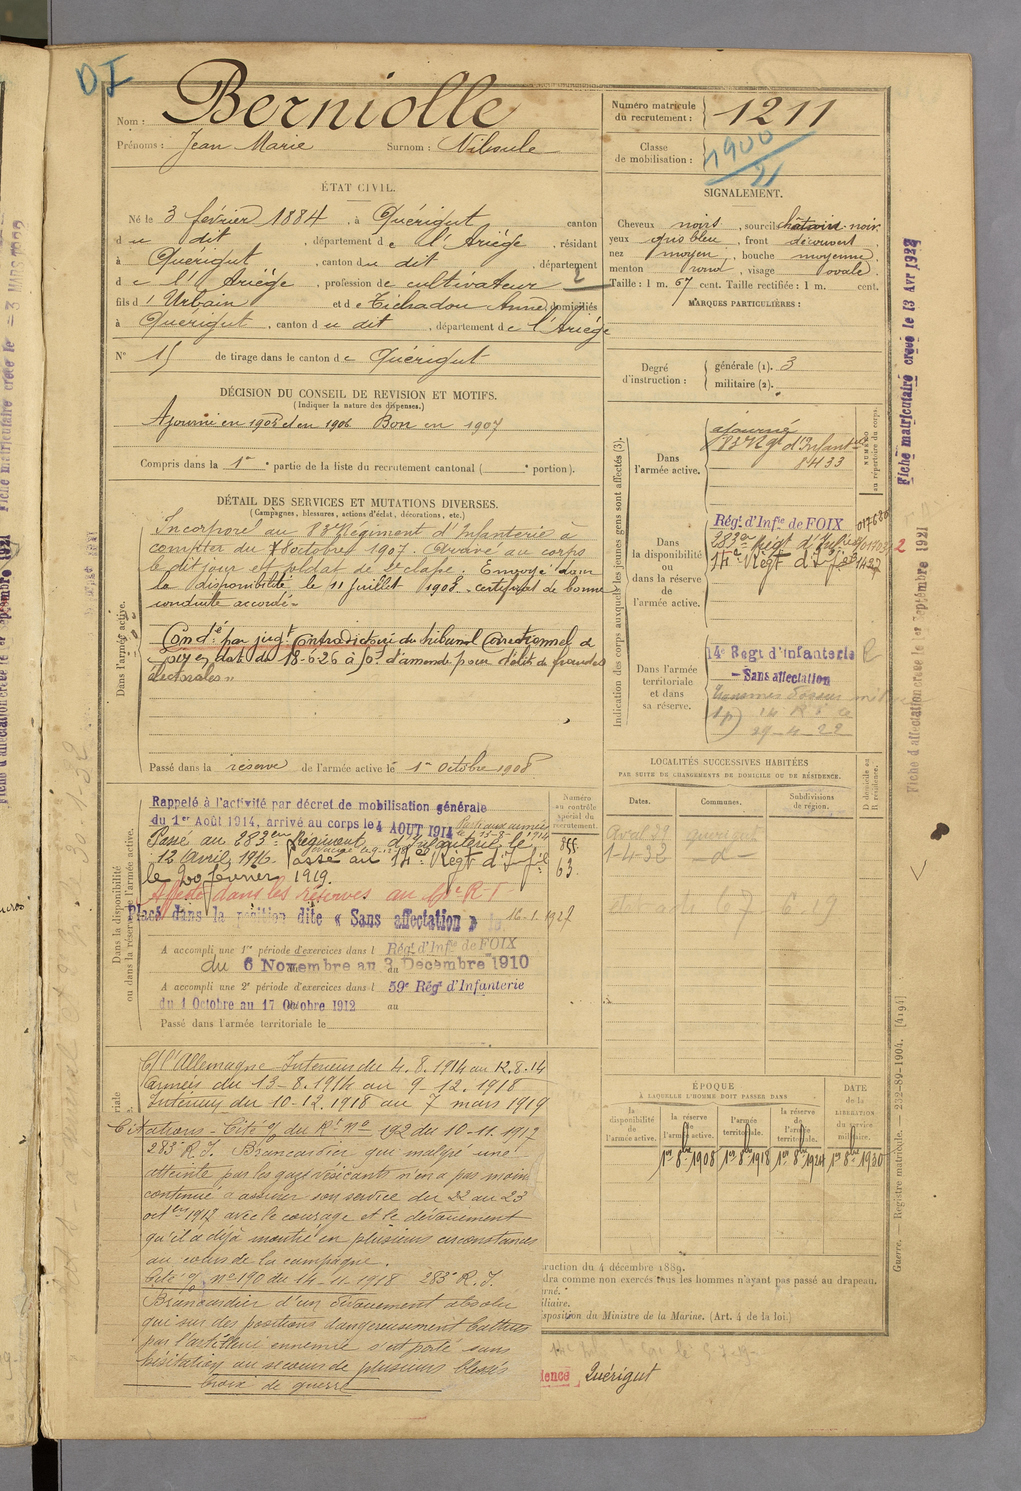 DI
Nom : Berniolle
Prénoms : Jean Marie Surnom : Niboule
Numéro matricule du recrutement : 1211
Classe de mobilisation : 1900
21
ÉTAT CIVIL.
Né le 3 février 1884, à Quérigut canton
du dit, département de l'Ariège, résidant
à Quérigut, canton du dit, département
de l'Ariège, profession de cultivateur 2
fils d'Urbain et de Tichadou Anne domiciliés
à Quérigut, canton du dit, département de l'Ariège
N° 15 de tirage dans le canton de Quérigut
SIGNALEMENT.
Cheveux noirs, sourcils châtains noir.
yeux gris bleu, front découvert,
nez moyen, bouche moyenne,
menton rond, visage ovale.
Taille : 1 m. 67 cent. Taille rectifiée : 1 m. cent.
MARQUES PARTICULIÈRES :
Degré d'instruction :
générale (1). 3
militaire (2).
DÉCISION DU CONSEIL DE REVISION ET MOTIFS.
(Indiquer la nature des dispenses.)
Ajourné en 1905 et en 1906 Bon en 1907
Compris dans la 1re partie de la liste du recrutement cantonal ( portion).
DÉTAIL DES SERVICES ET MUTATIONS DIVERSES.
(Campagnes, blessures, actions d'éclat, décorations, etc.)
Dans l'armée active.
Incorporé au 83e Régiment d'Infanterie à
compter du 8 octobre 1907. Arrivé au corps
le dit jour et soldat de 2e classe. Envoyé dans
la disponibilité le 11 juillet 1908. certificat de bonne
conduite accordé
Condé par jugt Contradictoire du tribunal Correctionnel de
en date du 18-6-26 à d'amende pour délit de fraudes
électorales
Passé dans la réserve de l'armée active le 1er octobre 1908
Dans la disponibilité ou dans la réserve de l'armée active.
Rappelé à l'activité par décret de mobilisation générale
du 1er Août 1914, arrivé au corps le 4 AOUT 1914
Parti aux armées le 13-8-1914
Passé au 283e Régiment d'Infanterie le
12 Avril 1916. Passé au 14e Regt d'Inf ie
le 20 février 1919.
Affecté dans les réserves au R I
Placé dans la position dite « Sans affectation » le 16-1-1927
Numéro au contrôle spécial du recrutement.
855
63
A accompli une 1re période d'exercices dans l Régt d'Infie de FOIX
du 6 Novembre au 3 Décembre 1910
A accompli une 2e période d'exercices dans l 59e Régt d'Infanterie
du 1 Octobre au 17 Octobre 1912 au
Passé dans l'armée territoriale le
C/ l'Allemagne Intérieur du 4.8.1914 au 12.8.14
Armées du 13-8.1914 au 9-12.1918
Intérieur du 10-12.1918 au 7 mars 1919
Citations - Cité o/ du Rt No 192 du 10-11.1917
283e R.I. Brancardier qui malgré une
atteinte par les gaz vésicants n'en a pas moins
continué à assurer son service du 22 au 23
octbre 1917 avec le courage et le dévouement
qu'il a déjà montré en plusieurs circonstances
au cours de la campagne.
Cité o/ no 190 du 14-11-1918 283e R.I.
Brancardier d'un dévouement absolu
qui sur des positions dangereusement battues
par l'artillerie ennemie s'est porté sans
hésitation au secours de plusieurs blessés
Croix de guerre
Indication des corps auxquels les jeunes gens sont affectés (3).
NUMÉRO au répertoire du corps.
Dans l'armée active.
ajourné
83e Rgt d'Infanterie
8433
Dans la disponibilité ou dans la réserve de l'armée active.
Régt d'Infie de FOIX 017620
283e Régt d'Infie 2
14e Regt d'Inf
Dans l'armée territoriale et dans sa réserve.
14e Regt d'Infanterie
— Sans affectation
14 R I le
29-4-22
LOCALITÉS SUCCESSIVES HABITÉES
PAR SUITE DE CHANGEMENTS DE DOMICILE OU DE RÉSIDENCE.
Dates. Communes. Subdivisions de région. D domicile ou R résidence.
Avril 29 Quérigut
1-4-32 — d —
ÉPOQUE
À LAQUELLE L'HOMME DOIT PASSER DANS
la disponibilité de l'armée active.
la réserve de l'armée active.
l'armée territoriale.
la réserve de l'armée territoriale.
DATE de la LIBÉRATION du service militaire.
1er 8bre 1908 1er 8bre 1918 1er 8bre 1924 1er 8bre 1930
ruction du 4 décembre 1889.
dra comme non exercés tous les hommes n'ayant pas passé au drapeau.
rné.
iliaire.
sposition du Ministre de la Marine. (Art. 4 de la loi.)
dence Quérigut
Guerre. Registre matricule. — 232-89-1904. [4194]
Fiche matriculaire créée le 13 Avr 1922
Fiche d'affectation créée le 1er Septembre 1921